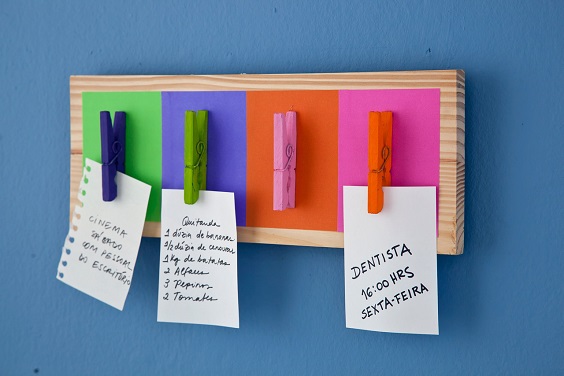 CINEMA
SÁBADO
COM PESSOAL
DO ESCRITÓRIO
Quitanda
1 dúzia de bananas
1/2 dúzia de cenouras
1 kg de batatas
2 Alfaces
3 Pepinos
2 Tomates
DENTISTA
16:00 HRS
SEXTA-FEIRA